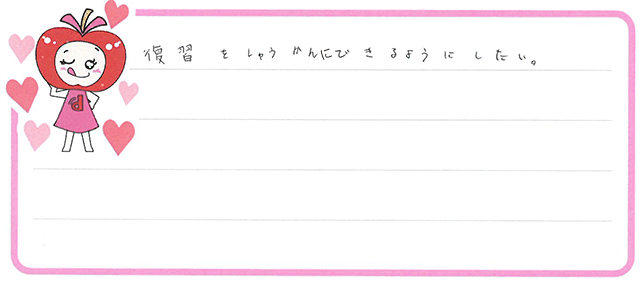 復習をしゅうかんにできるようにしたい。
d